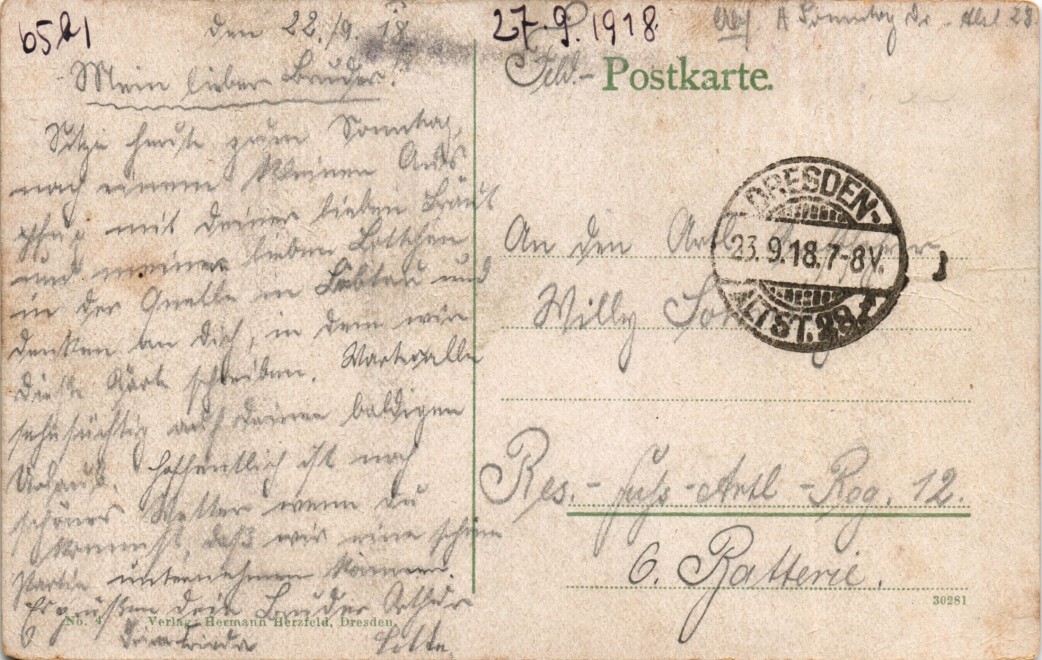 6521
den 22./9. 18.
Mein lieber Bruder!
Sitze heute zum Sonntag,
nach einem kleinen Aus
pflug mit deiner lieben Braut
und meiner lieben Lottchen
in der Quelle in Löbtau und
denken an dich, in dem wir
diese Karte schreiben. Warte alle
sehnsüchtig auf deinen baldigen
Urlaub. Hoffentlich ist noch
schönes Wetter wenn du
kommst, daß wir eine schöne
Partie unternehmen können.
Es grüßen dein Bruder Arthur
deine Frieda Lotte.
No. 4 Verlag: Hermann Herzfeld, Dresden.
27.9.1918.
Abs. A Sonntag Dr.
Feld- Postkarte.
DRESDEN-
23.9.18.7-8V.
ALTST. 28
An den
Willy
Res.-Fuß-Artl-Reg. 12.
6. Batterie.
30281